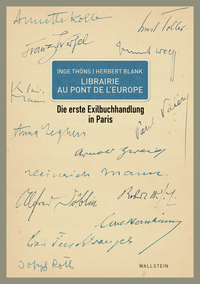 Annette Kolb
Ernst Toller
Franz Werfel
INGE THÖNS | HERBERT BLANK
LIBRAIRIE
AU PONT DE L'EUROPE
Die erste Exilbuchhandlung
in Paris
Klaus
Mann
Anna Seghers
Arnold Zweig
Heinrich Mann
Alfred Döblin
Robert
Lion Feuchtwanger
Joseph Roth
WALLSTEIN